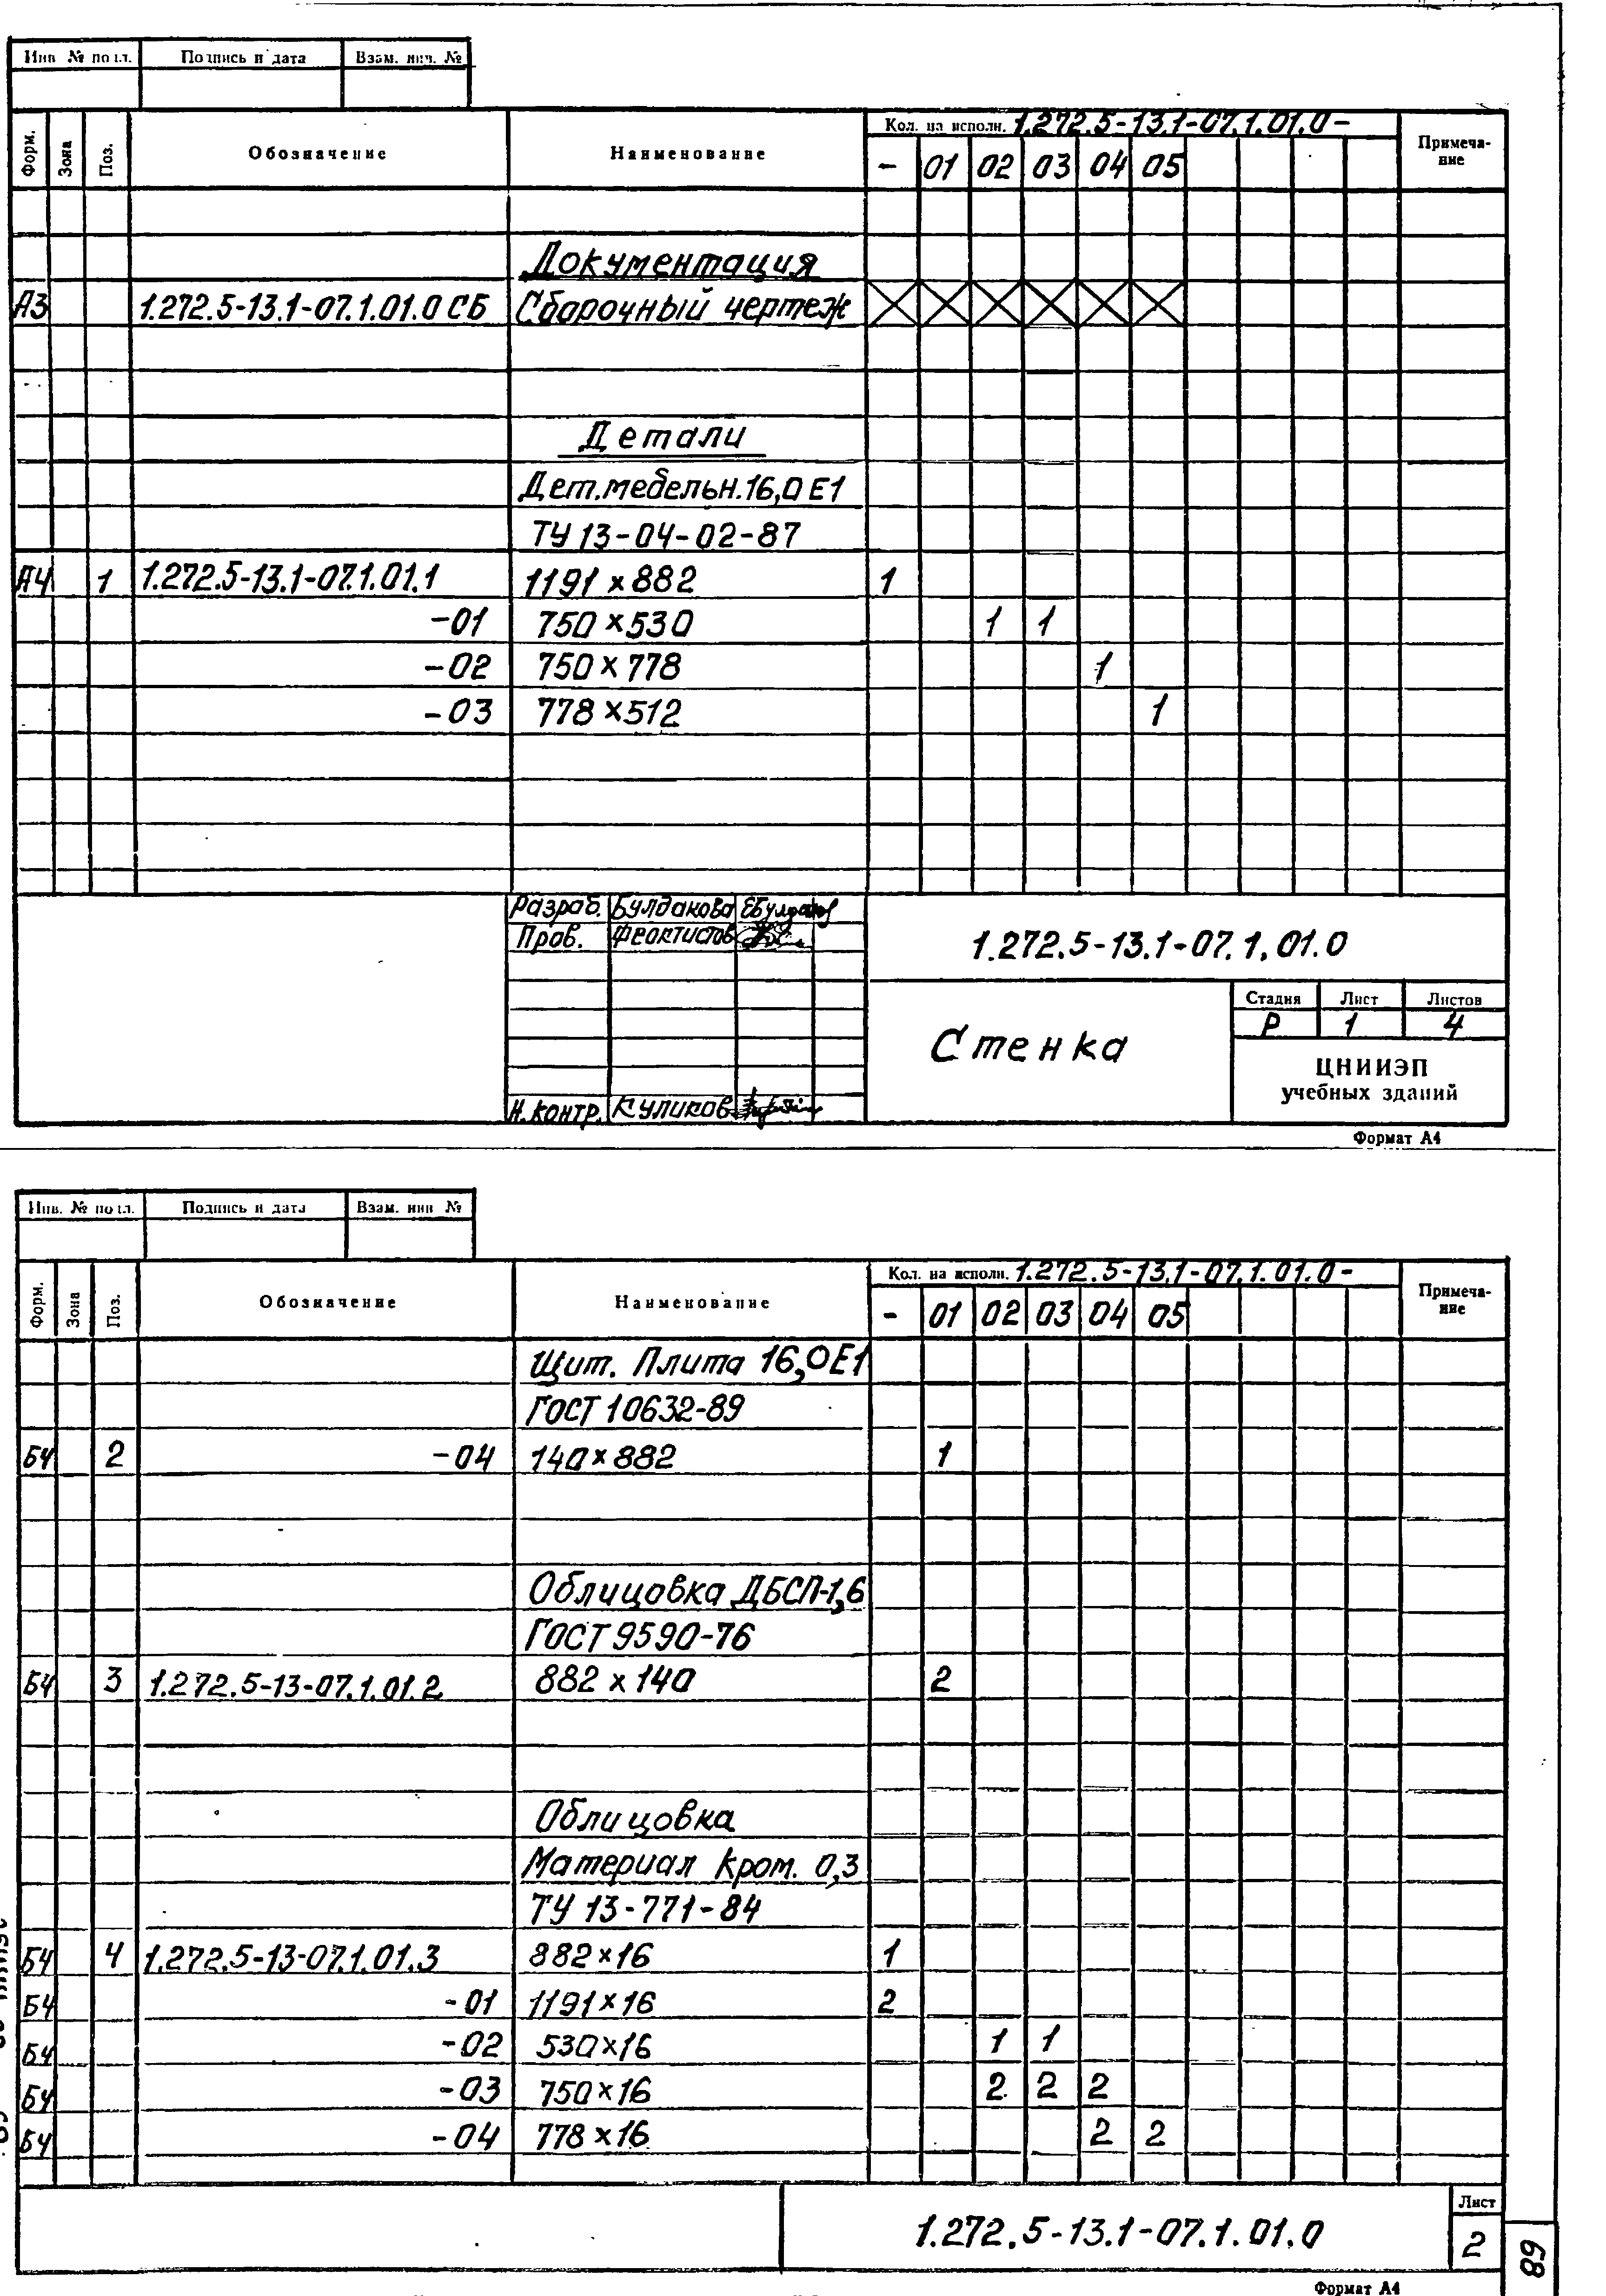 Инв. № подл. Подпись и дата Взам. инв. №
Форм. Зона Поз. Обозначение Наименование Кол. на исполн. 1.272.5-13.1-07.1.01.0- Примеча-
ние
- 01 02 03 04 05
Документация
А3 1.272.5-13.1-07.1.01.0 СБ Сборочный чертеж
Детали
Дет.мебельн.16,0 Е1
ТУ 13-04-02-87
А4 1 1.272.5-13.1-07.1.01.1 1191 х 882 1
-01 750 х 530 1 1
-02 750 х 778 1
-03 778 х 512 1
Разраб. Булдакова
Пров. Феоктистов
1.272.5-13.1-07.1.01.0
Стенка
Стадия Лист Листов
Р 1 4
ЦНИИЭП
учебных зданий
Н.контр. Куликов
Формат А4
Инв. № подл. Подпись и дата Взам. инв №
Форм. Зона Поз. Обозначение Наименование Кол. на исполн. 1.272.5-13.1-07.1.01.0- Примеча-
ние
- 01 02 03 04 05
Щит. Плита 16,0Е1
ГОСТ 10632-89
БЧ 2 -04 140 х 882 1
Облицовка ДБСП-1,6
ГОСТ 9590-76
БЧ 3 1.272.5-13-07.1.01.2 882 х 140 2
Облицовка
Материал Кром. 0,3
ТУ 13-771-84
БЧ 4 1.272.5-13-07.1.01.3 882 х 16 1
БЧ -01 1191 х 16 2
БЧ -02 530 х 16 1 1
БЧ -03 750 х 16 2 2 2
БЧ -04 778 х 16 2 2
1.272.5-13.1-07.1.01.0
Лист
2
68
Формат А4